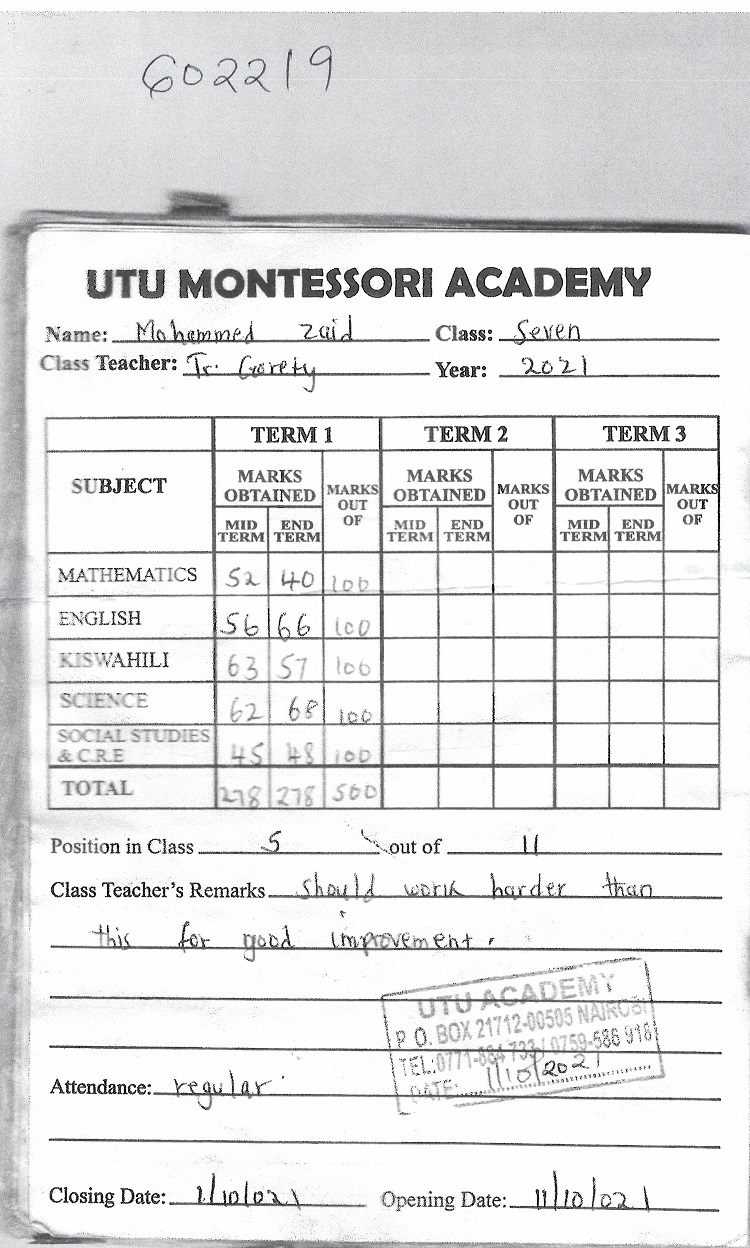 602219
UTU MONTESSORI ACADEMY
Name: Mohammed Zaid Class: Seven
Class Teacher: Tr. Gorety Year: 2021
TERM 1 TERM 2 TERM 3
SUBJECT MARKS OBTAINED MARKS OUT OF MARKS OBTAINED MARKS OUT OF MARKS OBTAINED MARKS OUT OF
MID TERM END TERM MID TERM END TERM MID TERM END TERM
MATHEMATICS 52 40 100
ENGLISH 56 66 100
KISWAHILI 63 57 100
SCIENCE 62 68 100
SOCIAL STUDIES
& C.R.E 45 48 100
TOTAL 278 278 500
Position in Class 5 out of 11
Class Teacher's Remarks should work harder than
this for good improvement.
UTU ACADEMY
P.O. BOX 21712-00505 NAIROBI
TEL:0771-884 733 / 0759-586 918
DATE: 1/10/2021
Attendance: regular
Closing Date: 1/10/021 Opening Date: 11/10/021